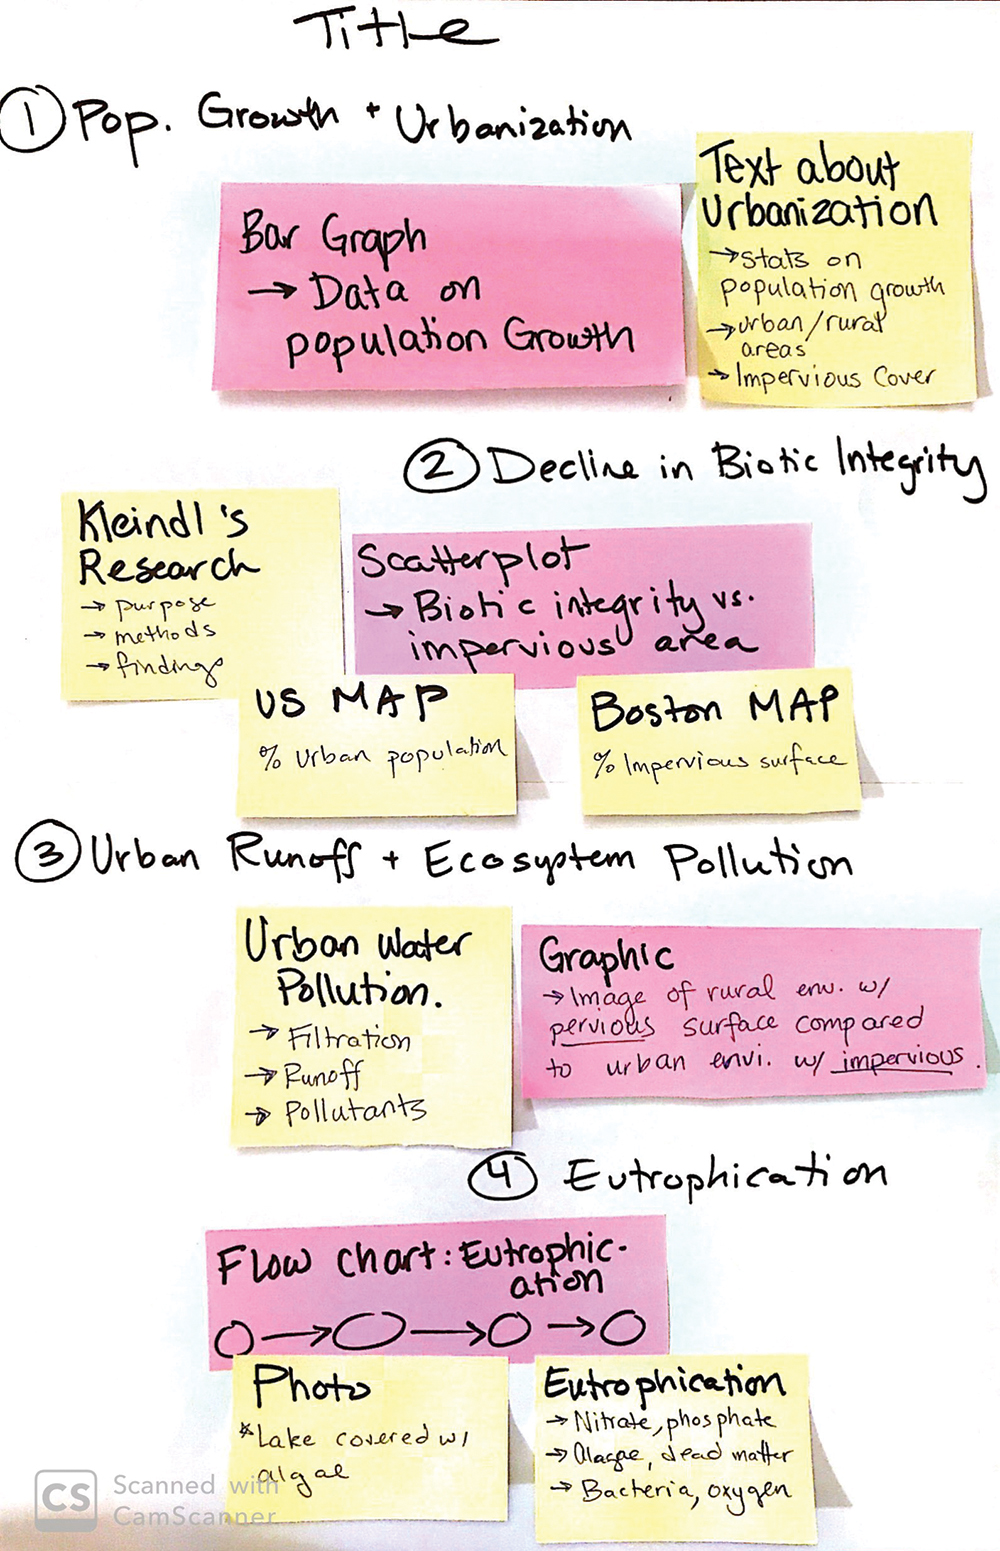 Title
① Pop. Growth + Urbanization
Bar Graph
→ Data on
population Growth
Text about
Urbanization
→ stats on
population growth
→ urban/rural
areas
→ Impervious Cover
② Decline in Biotic Integrity
Kleindl's
Research
→ purpose
→ methods
→ findings
Scatterplot
→ Biotic integrity vs.
impervious area
US MAP
% Urban population
Boston MAP
% Impervious surface
③ Urban Runoff + Ecosystem Pollution
Urban Water
Pollution.
→ Filtration
→ Runoff
→ Pollutants
Graphic
→ Image of rural env. w/
pervious surface compared
to urban envi. w/ impervious.
④ Eutrophication
Flow chart: Eutrophic-
ation
Photo
* Lake covered w/
algae
Eutrophication
→ Nitrate, phosphate
→ Alagae, dead matter
→ Bacteria, oxygen
CS Scanned with
CamScanner